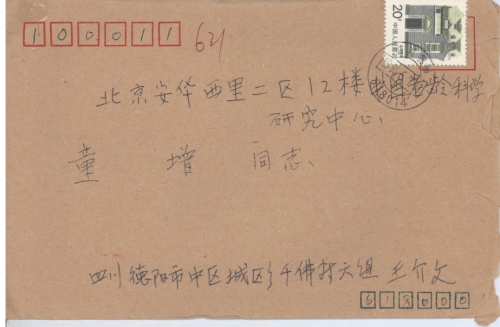 100011
621
20分
中国人民邮政
北京安华西里二区12楼中国老龄科学
研究中心
童增同志
四川德阳市中区城区乡千佛村六组 王介文
618000